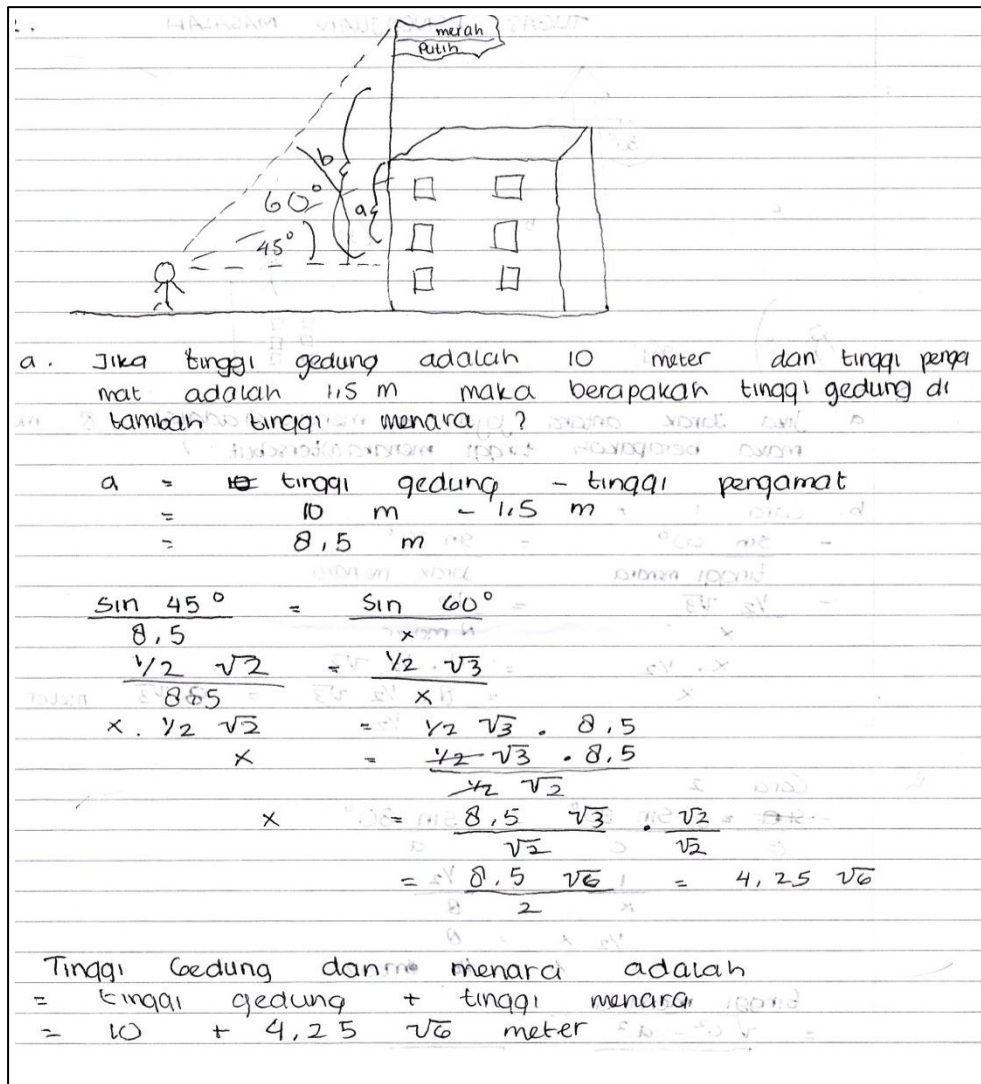 merah
Putih
b
60°
a
45°
a. Jika tinggi gedung adalah 10 meter dan tinggi penga
mat adalah 1,5 m maka berapakah tinggi gedung di
tambah tinggi menara ?
a = tinggi gedung - tinggi pengamat
= 10 m - 1,5 m
= 8,5 m
sin 45° / 8,5 = sin 60° / x
1/2 √2 / 8,5 = 1/2 √3 / x
x . 1/2 √2 = 1/2 √3 . 8,5
x = 1/2 √3 . 8,5 / 1/2 √2
x = 8,5 √3 / √2 . √2 / √2
= 8,5 √6 / 2 = 4,25 √6
Tinggi Gedung dan menara adalah
= tinggi gedung + tinggi menara
= 10 + 4,25 √6 meter